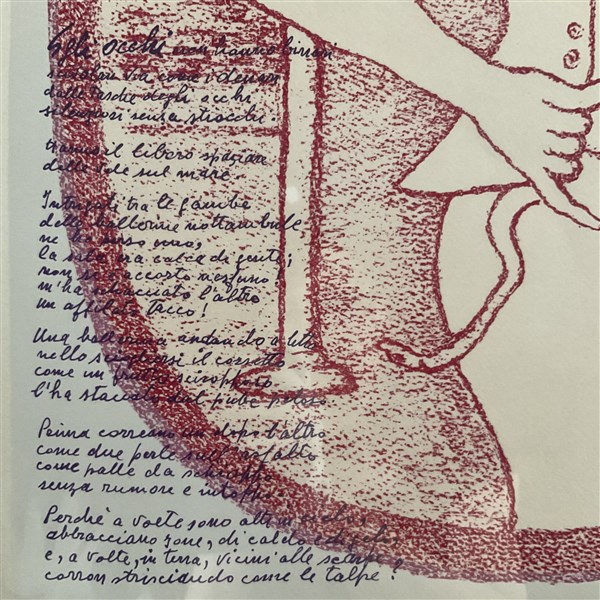 Egli occhi non hanno binari
come i denari
dalle tasche degli occhi
silenziosi senza
tranne il libero spaziare
delle vele sul mare.
Intrufoli tra le gambe
delle ballerine nottambule
ne ho perso uno,
la sala era calca di gente;
non s'è accorto nessuno.
m'ha schiacciato l'altro
un affilato tacco!
Una ballerina andando a letto
nello sciogliersi il corsetto
come un frutto sciroppato
l'ha staccato dal pube peloso
Prima correano un dopo l'altro
come due perle sull'asfalto
come palle da
senza rumore e intoppo.
Perchè a volte sono
abbracciano zone, di caldo e di gelo,
e, a volte, in terra, vicini alle scarpe
corron strisciando come le talpe!